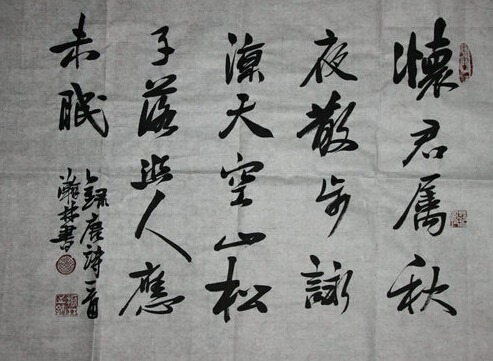 懷君屬秋
夜散步詠
涼天空山松
子落幽人應
未眠
錄唐詩一首
林書